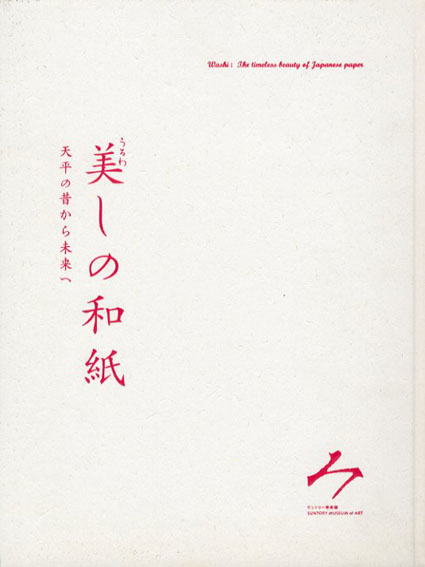 Washi : The timeless beauty of Japanese paper
うるわ
美しの和紙
天平の昔から未来へ
サントリー美術館
SUNTORY MUSEUM of ART